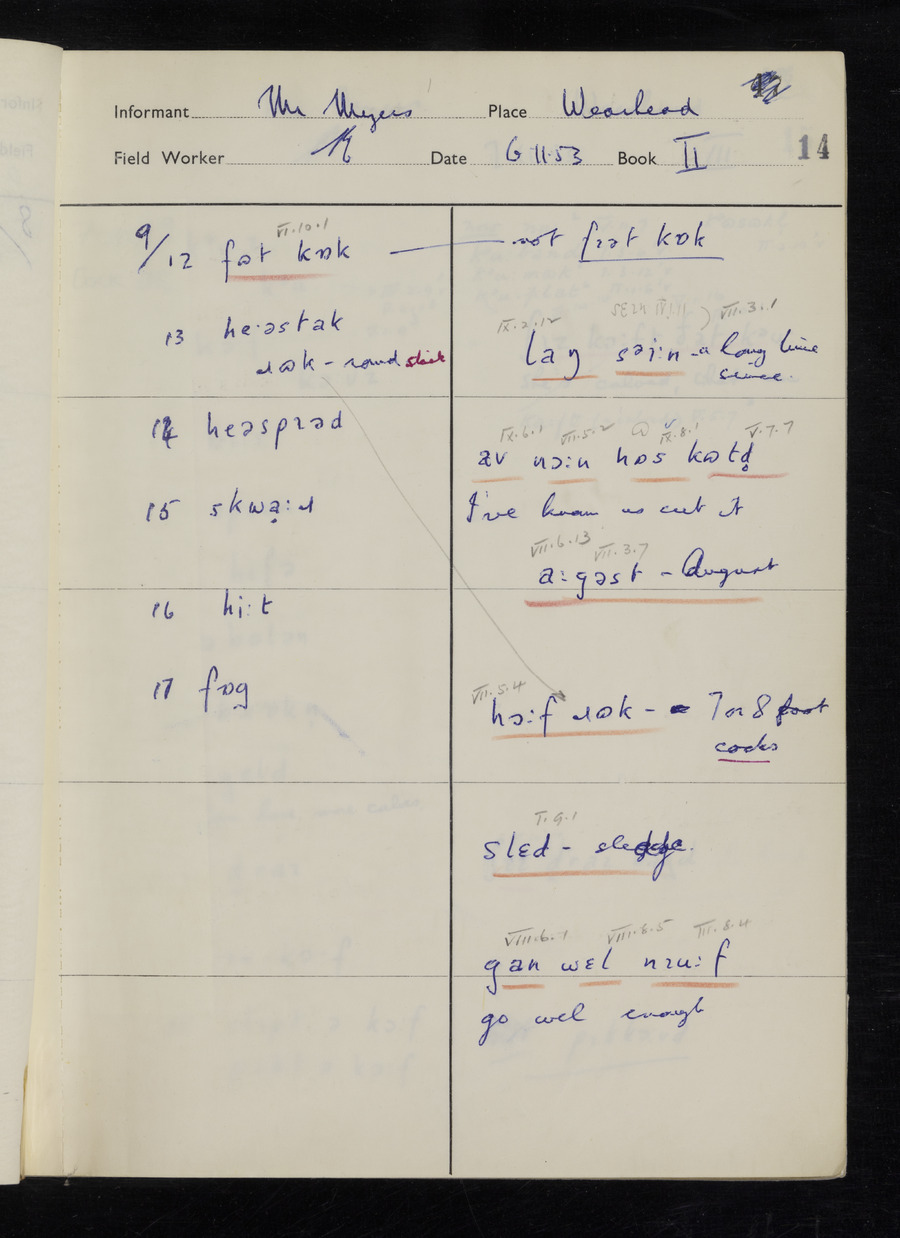 Informant Mr Myers Place Wearhead
Field Worker Date 6 11.53 Book II 14
VI.10.1
9/12 fɵt kɒk — not fɪət kɒk
13 heːəstak
ɹɵk – round stack
IX.2.12 VII.3.1
laŋ səiːn – a long time
since.
14 heəspɪəd
IX.6.1 VII.5.2 IX.8.1 V.7.7
av nɔːn hɒs kɵtd̥
15 skwaːɹ
I've known us cut it
VII.6.13 VII.3.7
aːgəst – August
16 hiːt
17 fɒg
VII.5.4
hɔːf ɹɵk – 7 or 8 foot
cocks
I.9.1
slɛd – sledge.
VIII.6.1 VIII.8.5 III.8.4
gan wɛl nɪuːf
go well enough